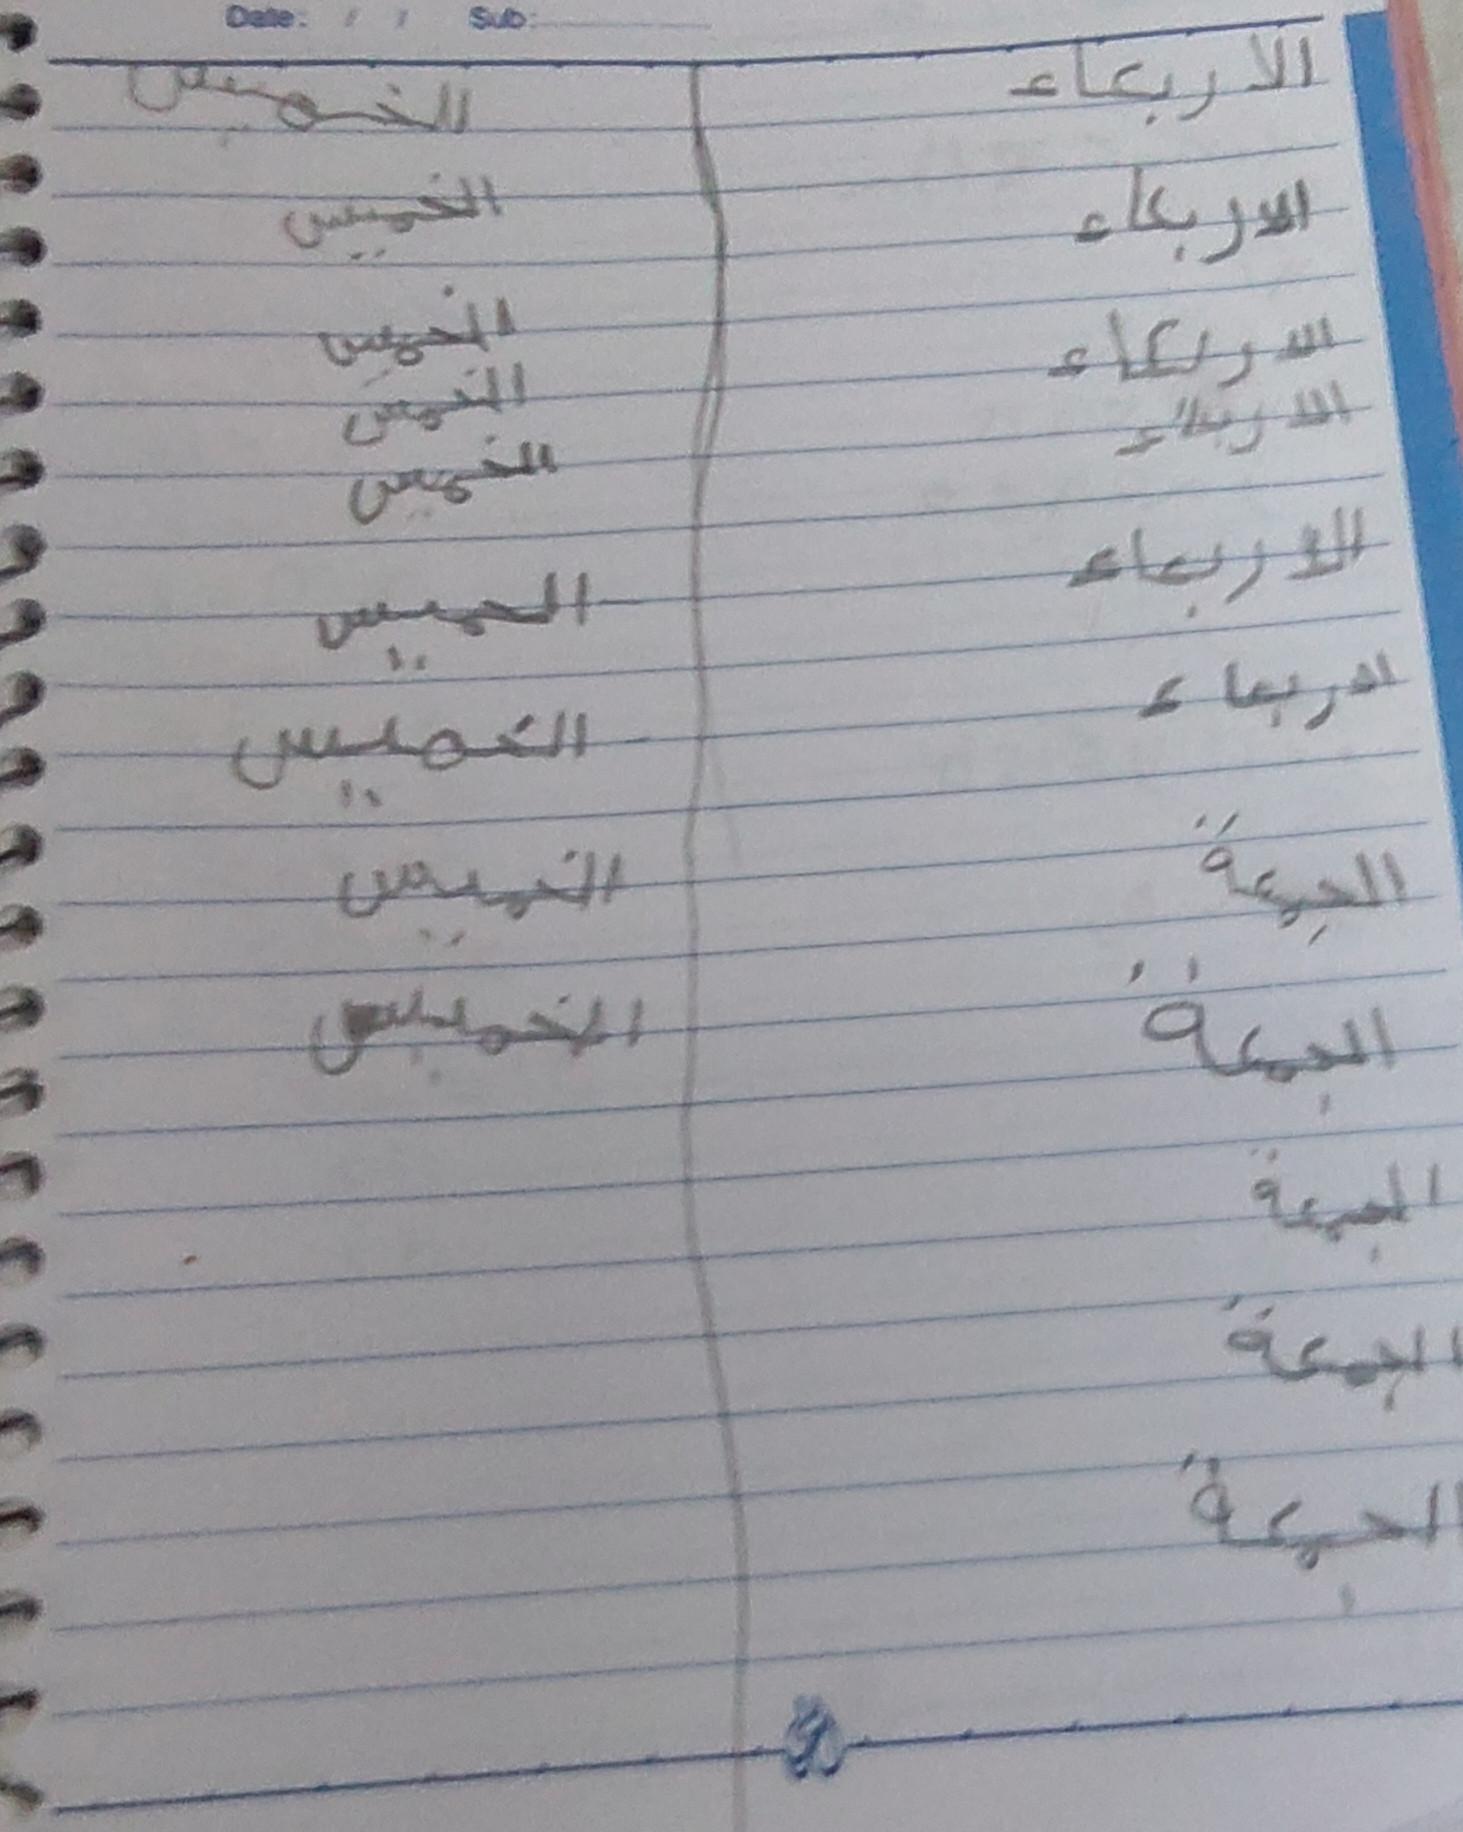 Date: / / Sub:
الاربعاء الخميس
الاربعاء الخميس
الاربعاء الخميس
الاربعاء الخميس
الخميس
الاربعاء الحميس
الاربعاء الخميس
الجمعة الخميس
الجمعة الخميس
الجمعة
الجمعة
الجمعة